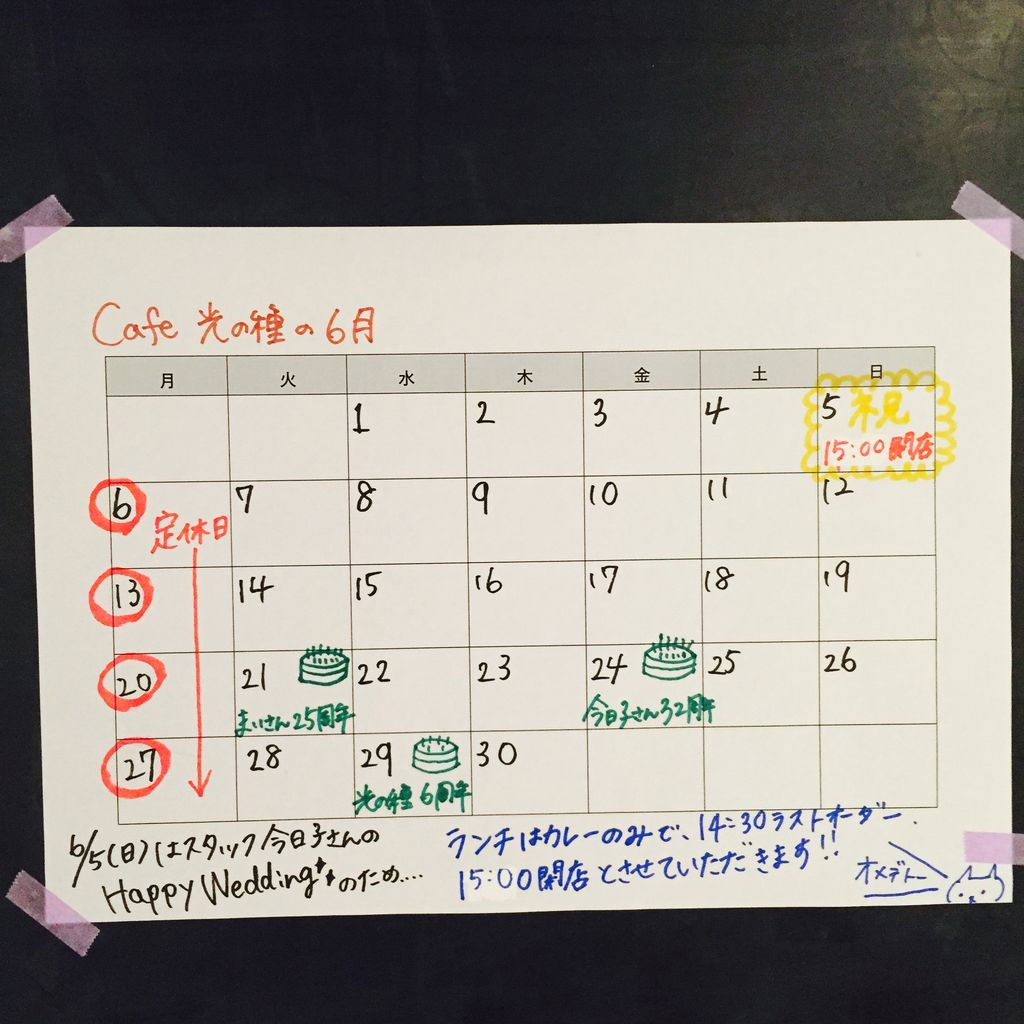 Cafe 光の種の6月
月 火 水 木 金 土 日
1 2 3 4 5 祝
15:00閉店
6 7 8 9 10 11 12
定休日
13 14 15 16 17 18 19
20 21 22 23 24 25 26
まいさん25周年 今日子さん32周年
27 28 29 30
光の種 6周年
6/5(日)はスタッフ今日子さんの
Happy Weddingのため....
ランチはカレーのみで、14:30ラストオーダー、
15:00閉店とさせていただきます!!
オメデトー